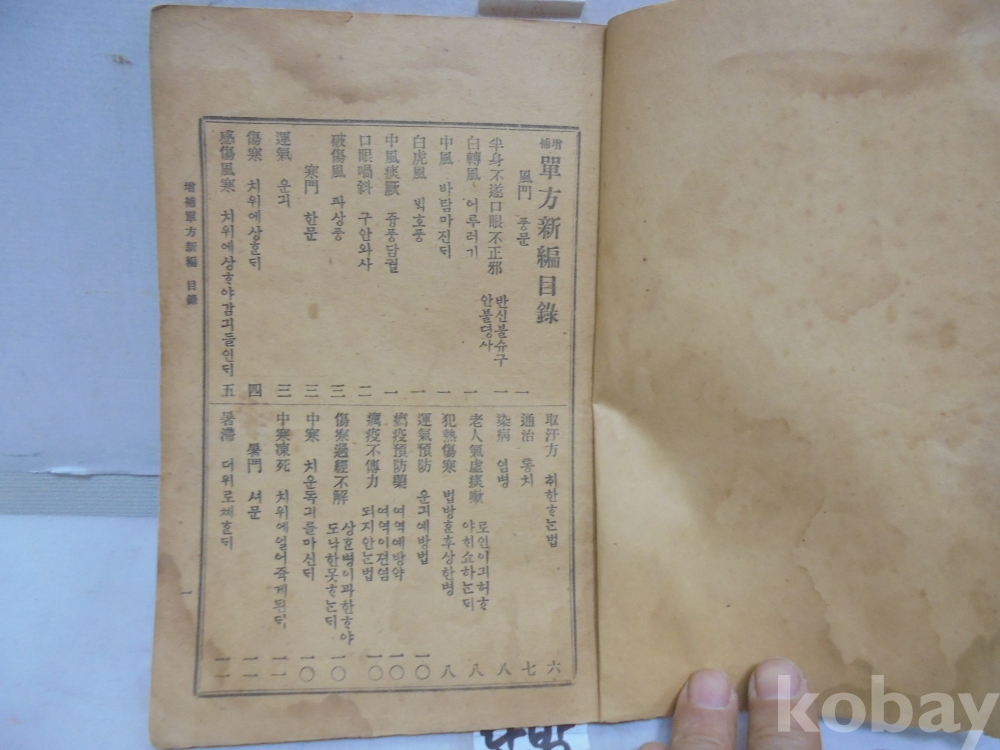 增補 單方新編目錄
風門 풍문 一
半身不遂口眼不正邪 반신불슈구안불뎡사 一
白轉風 어루러기 一
中風 바람마진듸 一
白虎風 빅호풍 一
中風痰厥 즁풍담궐 一
口眼喎斜 구안와사 二
破傷風 파상풍 三
寒門 한문 三
運氣 운긔 三
傷寒 치위에상ᄒᆞᆫ듸 四
感傷風寒 치위에상ᄒᆞ야감긔들인듸 五
取汗方 취한ᄒᆞᄂᆞᆫ법 六
通治 통치 七
染病 염병 八
老人氣虛痰嗽 로인이긔허ᄒᆞ야히쇼하ᄂᆞᆫ듸 八
犯熱傷寒 법방ᄒᆞᆫ후상한병 八
運氣預防 운긔예방법 一〇
癘疫預防藥 여역예방약 一〇
癘疫不傳力 여역이젼염되지안ᄂᆞᆫ법 一〇
傷寒過經不解 상한병이과한ᄒᆞ야도낙한못ᄒᆞᄂᆞᆫ듸 一〇
中寒 치운독긔를마신듸 一〇
中寒凍死 치위에얼어죽게된듸 一一
暑門 셔문 一一
暑滯 더위로체ᄒᆞᆫ듸 一一
增補單方新編 目錄
一
kobay